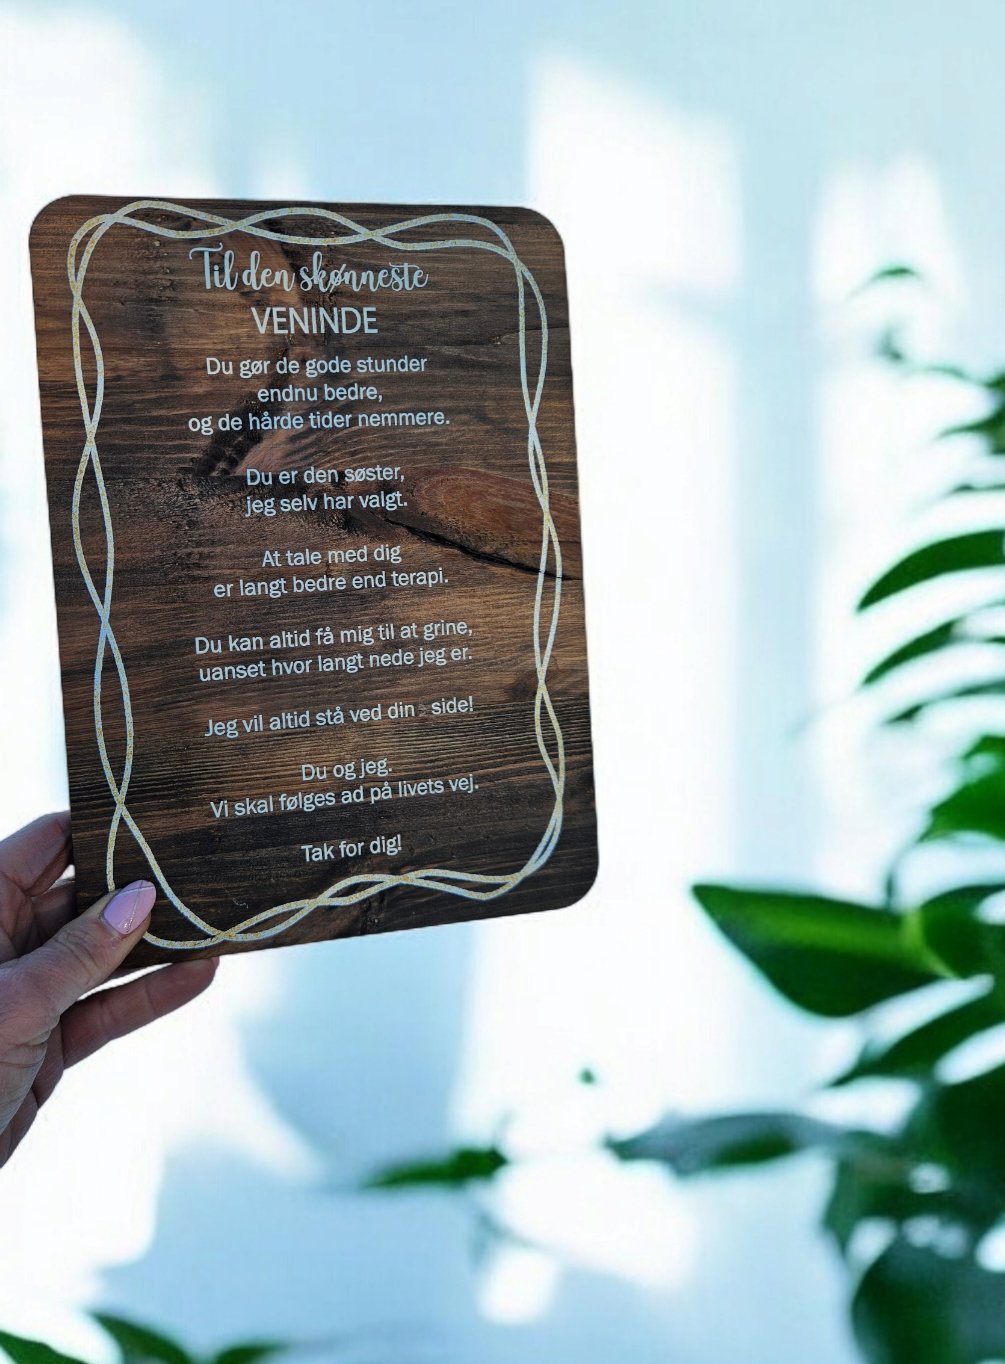 Til den skønneste
VENINDE
Du gør de gode stunder
endnu bedre,
og de hårde tider nemmere.
Du er den søster,
jeg selv har valgt.
At tale med dig
er langt bedre end terapi.
Du kan altid få mig til at grine,
uanset hvor langt nede jeg er.
Jeg vil altid stå ved din side!
Du og jeg.
Vi skal følges ad på livets vej.
Tak for dig!